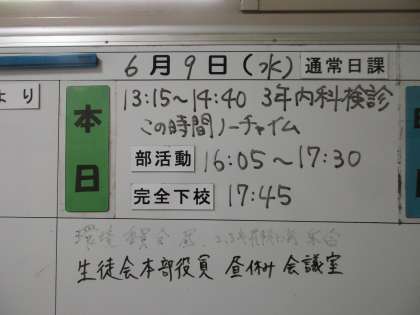 6月9日(水) 通常日課
より
本日
13:15～14:40 3年内科検診
この時間ノーチャイム
部活動 16:05～17:30
完全下校 17:45
環境委員会
生徒会本部役員 昼休み 会議室